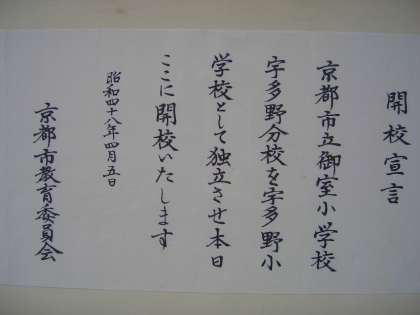 開校宣言
京都市立御室小学校
宇多野分校を宇多野小
学校として独立させ本日
ここに開校いたします
昭和四十八年四月五日
京都市教育委員会